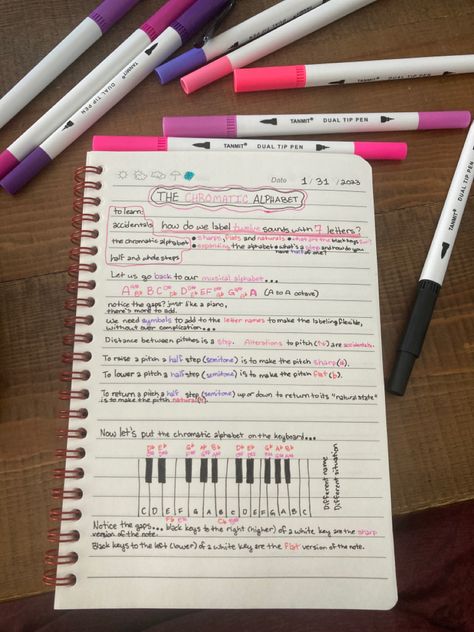 TANMIT DUAL TIP PEN
TANMIT DUAL TIP PEN
TANMIT DUAL TIP PEN
TANMIT DUAL TIP PEN
Date 1/31/2023
THE CHROMATIC ALPHABET
to learn:
accidentals
the chromatic alphabet
half and whole steps
how do we label twelve sounds with 7 letters?
• sharps, flats and naturals • what are the black keys for?
• expanding the alphabet • what's a step and how do you have half of one?
Let us go back to our musical alphabet...
(A to A octave)
notice the gaps? just like a piano,
there's more to add.
We need symbols to add to the letter names to make the labeling flexible,
without over complication...
Distance between pitches is a step. Alterations to pitch are accidentals.
To raise a pitch a half step (semitone) is to make the pitch sharp (#).
To lower a pitch a half step (semitone) is to make the pitch flat (b).
To return a pitch a half step (semitone) up or down to return to its "natural state"
is to make the pitch natural
Now let's put the chromatic alphabet on the keyboard...
C D E F G A B C D E F G A B C
Different name
Different situation
Notice the gaps... black keys to the right (higher) of a white key are the sharp
version of the note.
Black keys to the left (lower) of a white key are the flat version of the note.